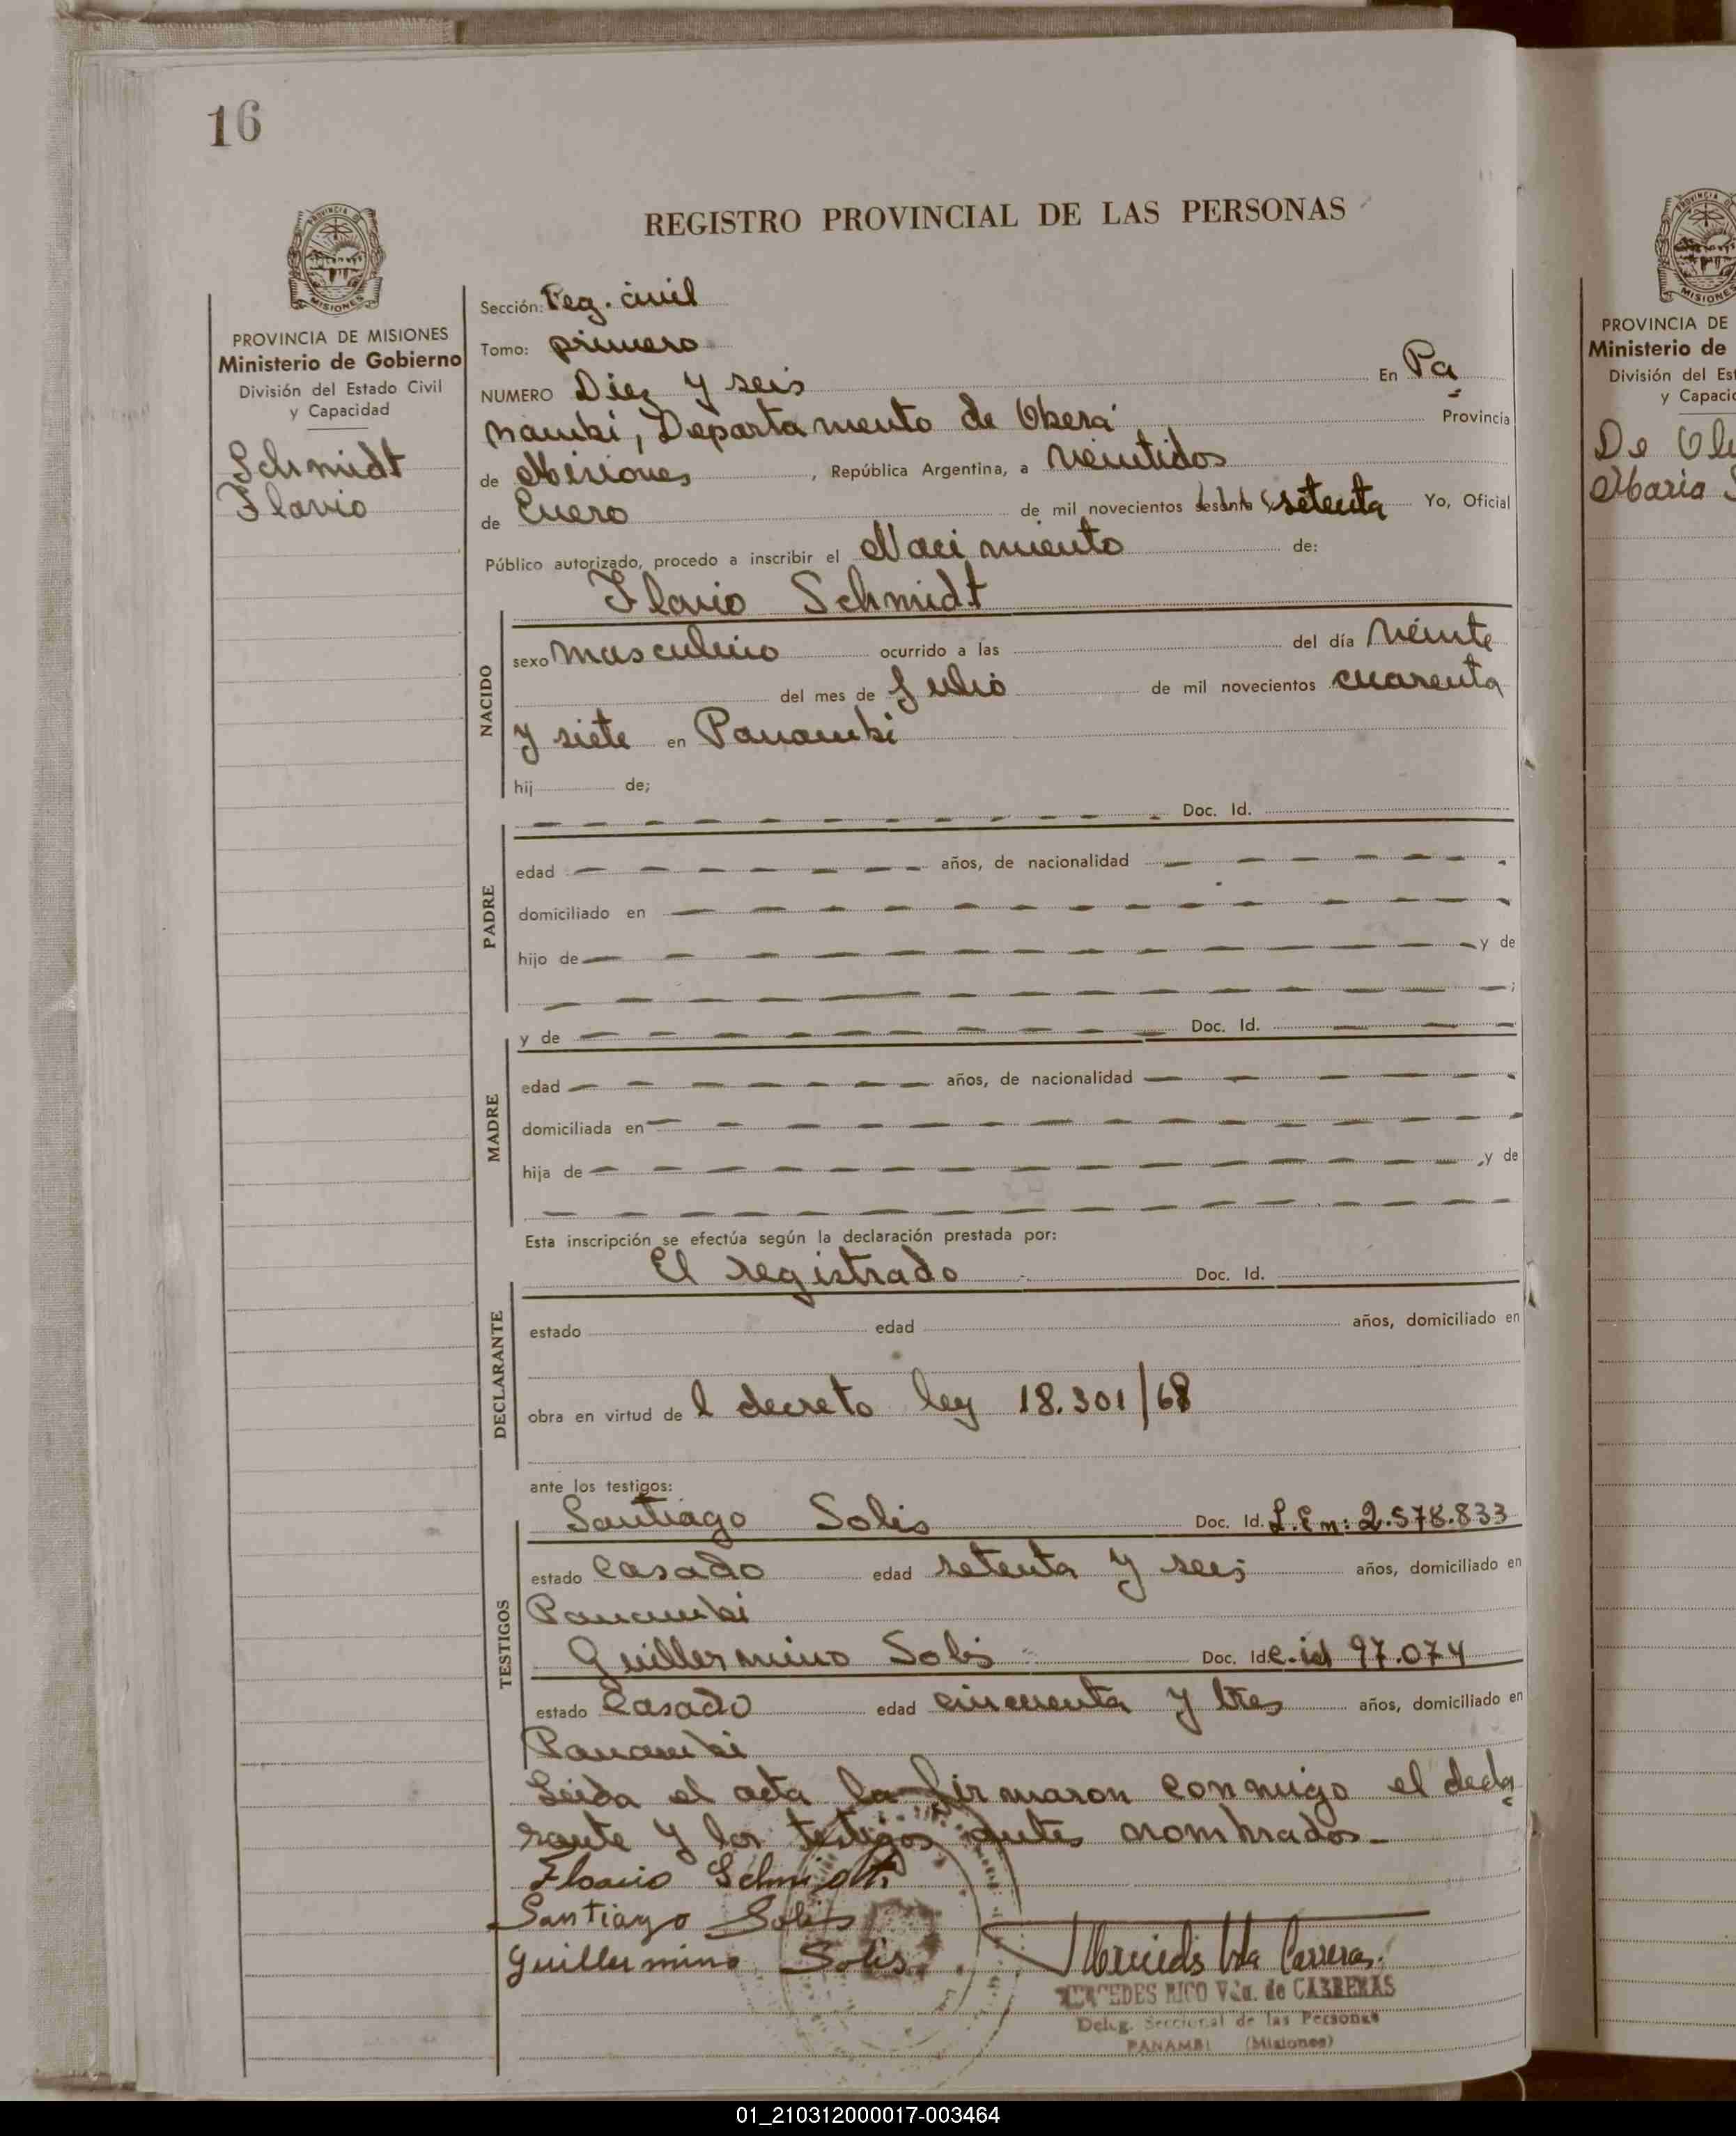 16
REGISTRO PROVINCIAL DE LAS PERSONAS
PROVINCIA DE MISIONES
Ministerio de Gobierno
División del Estado Civil
y Capacidad
Schmidt
Flavio
Sección: Reg. civil
Tomo: primero
NUMERO Diez y seis En Pa
nambi, Departamento de Oberá Provincia
de Misiones, República Argentina, a veintidos
de Enero de mil novecientos sesenta setenta Yo, Oficial
Público autorizado, procedo a inscribir el Nacimiento de:
Flavio Schmidt
NACIDO
sexo masculino ocurrido a las del día veinte
del mes de Julio de mil novecientos cuarenta
y siete en Panambi
hij de;
Doc. Id.
PADRE
edad años, de nacionalidad
domiciliado en
hijo de y de
y de Doc. Id.
MADRE
edad años, de nacionalidad
domiciliada en
hija de y de
Esta inscripción se efectúa según la declaración prestada por:
El registrado Doc. Id.
DECLARANTE
estado edad años, domiciliado en
obra en virtud de l decreto ley 18.301/68
ante los testigos:
Santiago Solis Doc. Id. L.E n: 2.578.833
TESTIGOS
estado casado edad setenta y seis años, domiciliado en
Panambi
Guillermino Solis Doc. Id c.id 97.074
estado casado edad cincuenta y tres años, domiciliado en
Panambi
Leida el acta la firmaron conmigo el decla
rante y los testigos antes nombrados.-
Flavio Schmidt
Santiago Solis
Guillermino Solis
Mercedes Vda Carreras
MERCEDES RICO Vda. de CARRERAS
Deleg. Seccional de las Personas
PANAMBI (Misiones)
PROVINCIA DE
Ministerio de
División del Est
y Capacid
De Oli
Maria
MISIONES
01_210312000017-003464